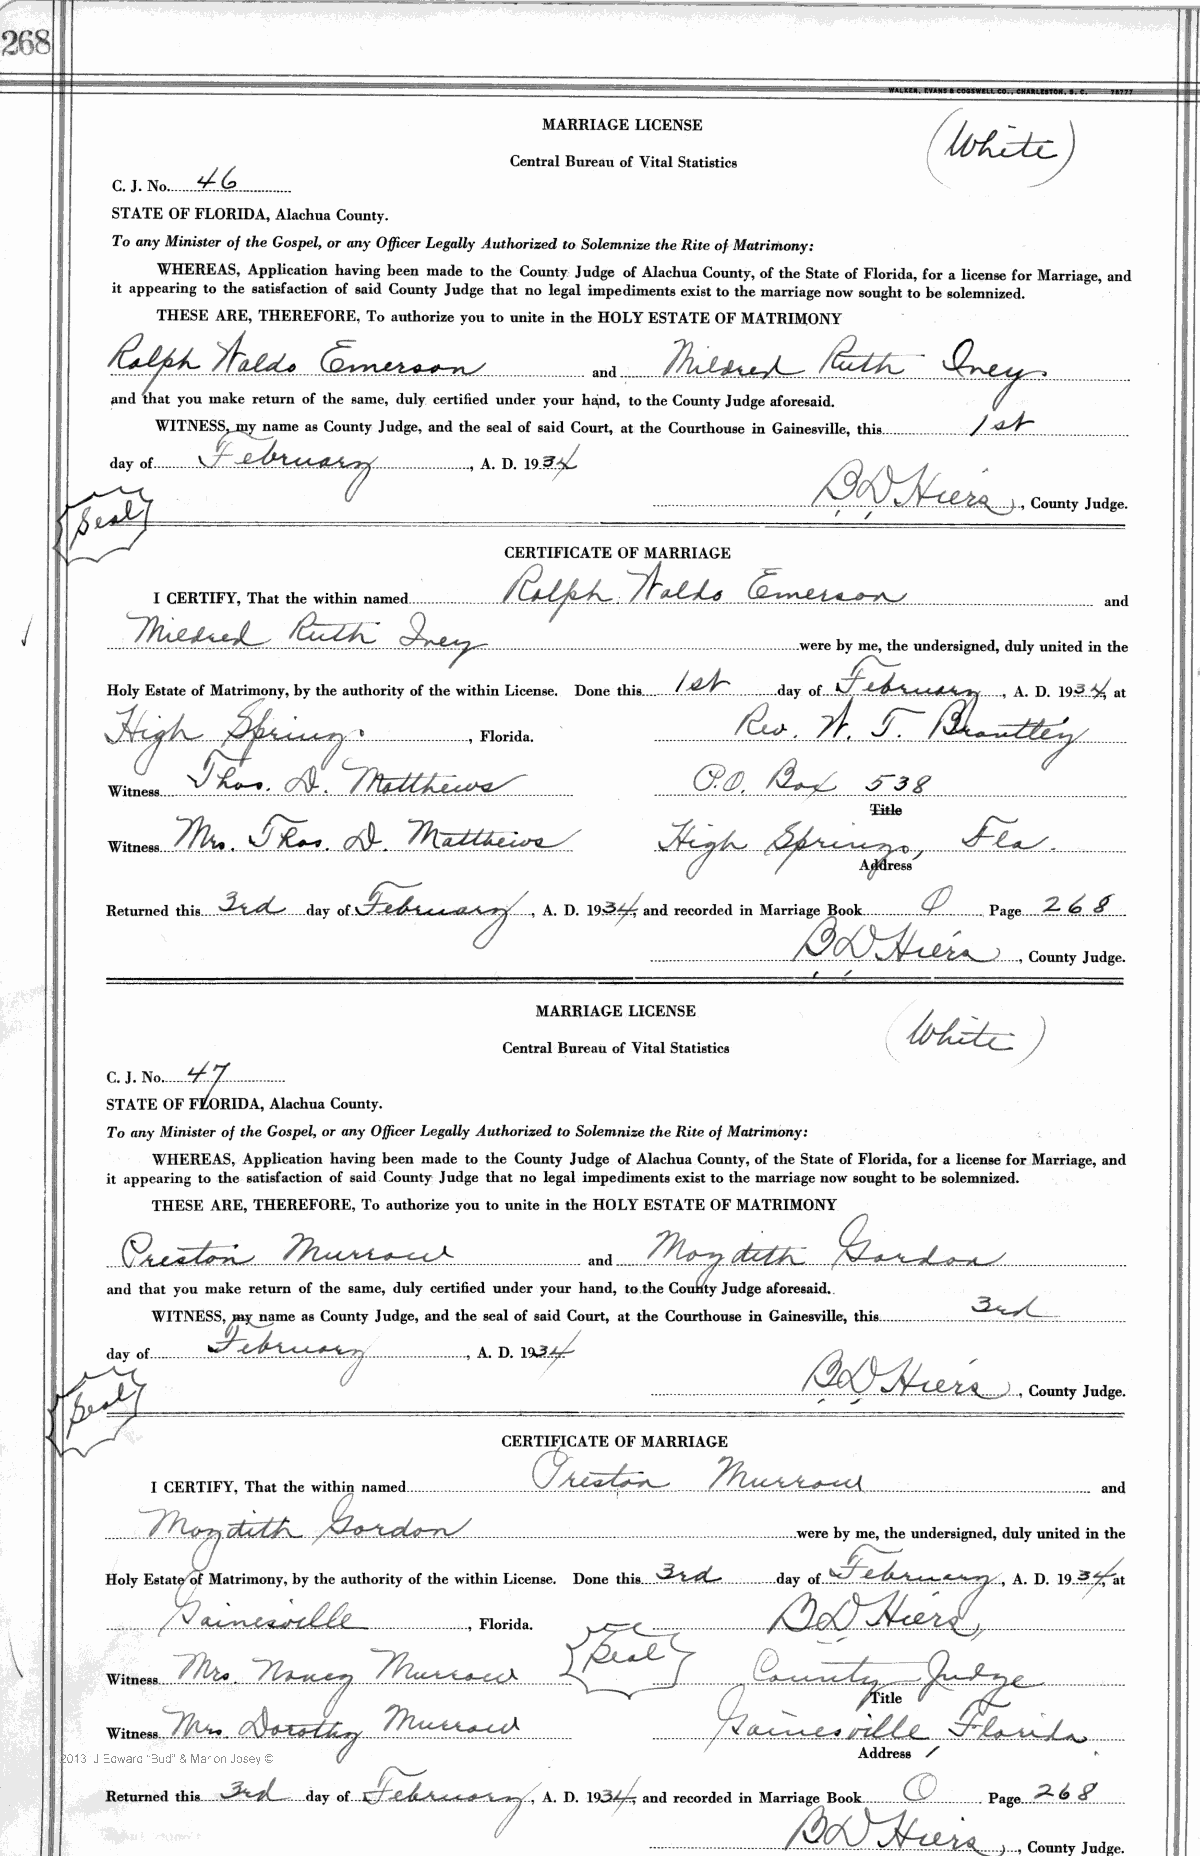 268
WALKER, EVANS & COGSWELL CO., CHARLESTON, S. C. 78777
MARRIAGE LICENSE
(White)
Central Bureau of Vital Statistics
C. J. No. 46
STATE OF FLORIDA, Alachua County.
To any Minister of the Gospel, or any Officer Legally Authorized to Solemnize the Rite of Matrimony:
WHEREAS, Application having been made to the County Judge of Alachua County, of the State of Florida, for a license for Marriage, and
it appearing to the satisfaction of said County Judge that no legal impediments exist to the marriage now sought to be solemnized.
THESE ARE, THEREFORE, To authorize you to unite in the HOLY ESTATE OF MATRIMONY
Ralph Waldo Emerson and Mildred Ruth Ivey.
and that you make return of the same, duly certified under your hand, to the County Judge aforesaid.
WITNESS, my name as County Judge, and the seal of said Court, at the Courthouse in Gainesville, this 1st
day of February, A. D. 1934
B D Hiers, County Judge.
Seal
CERTIFICATE OF MARRIAGE
I CERTIFY, That the within named Ralph Waldo Emerson and
Mildred Ruth Ivey were by me, the undersigned, duly united in the
Holy Estate of Matrimony, by the authority of the within License. Done this 1st day of February, A. D. 1934, at
High Springs, Florida. Rev. W. T. Brantley
Witness Thos. D. Matthews P.O. Box 538
Title
Witness Mrs. Thos. D. Matthews High Springs, Fla.
Address
Returned this 3rd day of February, A. D. 1934, and recorded in Marriage Book O Page 268
B D Hiers, County Judge.
MARRIAGE LICENSE
(White)
Central Bureau of Vital Statistics
C. J. No. 47
STATE OF FLORIDA, Alachua County.
To any Minister of the Gospel, or any Officer Legally Authorized to Solemnize the Rite of Matrimony:
WHEREAS, Application having been made to the County Judge of Alachua County, of the State of Florida, for a license for Marriage, and
it appearing to the satisfaction of said County Judge that no legal impediments exist to the marriage now sought to be solemnized.
THESE ARE, THEREFORE, To authorize you to unite in the HOLY ESTATE OF MATRIMONY
Preston Murrow and Moydith Gordon
and that you make return of the same, duly certified under your hand, to the County Judge aforesaid.
WITNESS, my name as County Judge, and the seal of said Court, at the Courthouse in Gainesville, this 3rd
day of February, A. D. 1934
B D Hiers, County Judge.
Seal
CERTIFICATE OF MARRIAGE
I CERTIFY, That the within named Preston Murrow and
Moydith Gordon were by me, the undersigned, duly united in the
Holy Estate of Matrimony, by the authority of the within License. Done this 3rd day of February, A. D. 1934, at
Gainesville, Florida. B D Hiers,
Witness Mrs. Nancy Murrow Seal County Judge
Title
Witness Mrs. Dorothy Murrow Gainesville Florida.
Address
2013 J Edward "Bud" & Marion Josey ©
Returned this 3rd day of February, A. D. 1934, and recorded in Marriage Book O Page 268
B D Hiers, County Judge.